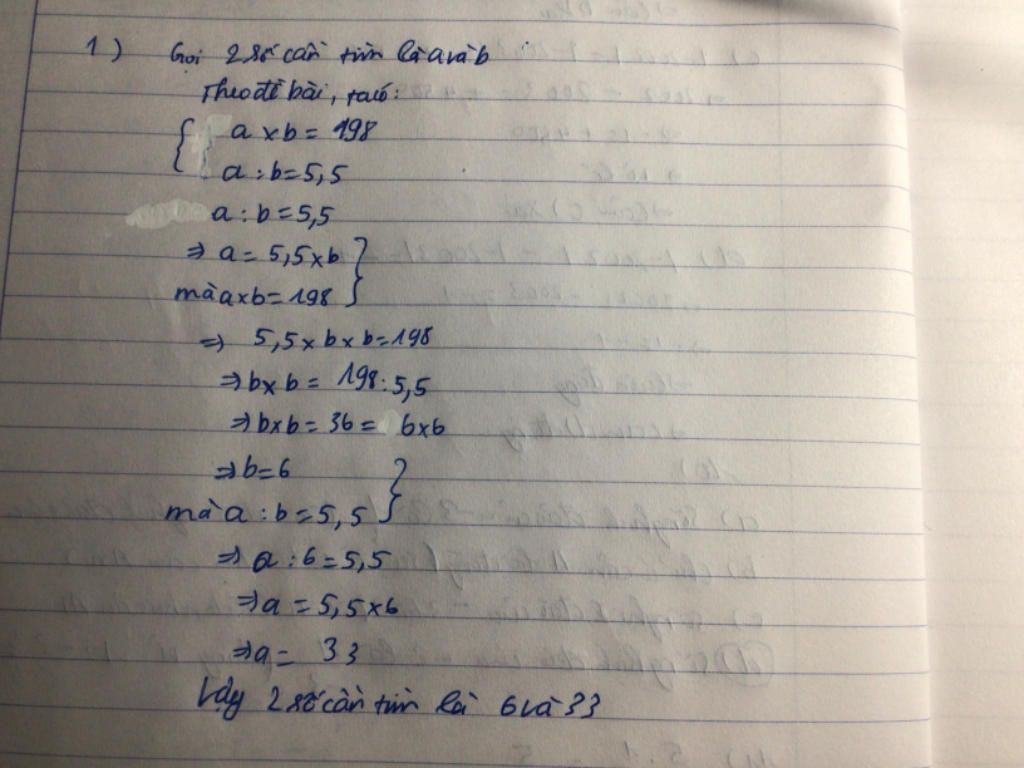 1) Gọi 2 số cần tìm là a và b
Theo đề bài, ta có:
a x b = 198
a : b = 5,5
a : b = 5,5
⇒ a = 5,5 x b
mà a x b = 198
⇒ 5,5 x b x b = 198
⇒ b x b = 198 : 5,5
⇒ b x b = 36 = 6 x 6
⇒ b = 6
mà a : b = 5,5
⇒ a : 6 = 5,5
⇒ a = 5,5 x 6
⇒ a = 33
Vậy 2 số cần tìm là 6 và 33